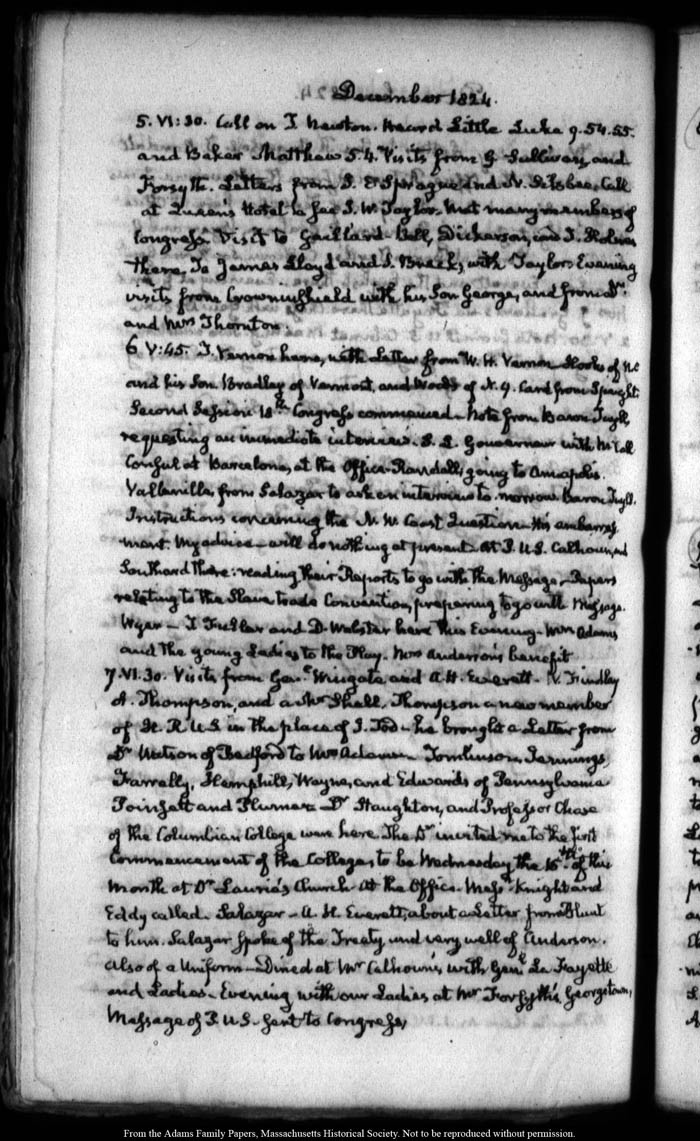 December 1824.
5. VI:30. Call on T Newton. Heard Little Luke 9.54.55.
and Baker Matthew 5.4. Visits from G Sullivan, and
Forsyth. Letters from S. E Sprague and N. Silsbee. Call
at Queen's Hotel to see J. W. Taylor. Met many members of
Congress. Visit to Gaillard. Bell, Dickerson, and J. Holmes
there. To James Lloyd and S. Breck, with Taylor. Evening
visits from Crowninshield with his Son George, and from Dr.
and Mrs Thornton.
6. V:45. T. Vernon here, with Letter from W. H. Vernon. Hooks of N.C
and his Son. Bradley of Vermont, and Woods of N.Y. Card from Speight.
Second Session 18th Congress commenced. Note from Baron Tuyll
requesting an immediate interview. S. L. Gouverneur with McCall
Consul at Barcelona, at the Office. Randall, going to Annapolis.
Vallenilla, from Salazar to ask an interview to-morrow. Baron Tuyll.
Instructions concerning the N. W. Coast Question. His embarrass
ment. My advice—will do nothing at present. At P. U.S. Calhoun, and
Southard there: reading their Reports to go with the Message. Papers
relating to the Slave trade Convention, preparing to go with Message.
Wyer— T Fuller and D. Webster here this Evening. Mrs Adams
and the young Ladies to the Play. Mrs Anderson's benefit
7. VI.30. Visits from Genl. Wingate and A. H. Everett. W. Findlay
A. Thompson, and a Mr Shall. Thompson a new member
of H. R U S. in the place of J. Tod—he brought a Letter from
Dr Watson of Bedford to Mrs Adams. Tomlinson, Jennings,
Farrelly, Hemphill, Wayne, and Edwards of Pennsylvania
Poinsett and Plumer. Dr Staughton, and Professor Chase
of the Columbian College were here. The Dr invited me to the first
Commencement of the College, to be Wednesday the 15th. of this
Month at Dr Laurie's Church. At the Office. Messrs Knight and
Eddy called. Salazar—A. H. Everett, about a Letter from Blunt
to him. Salazar spoke of the Treaty and very well of Anderson.
Also of a Uniform—Dined at Mr Calhoun's with Genl. La Fayette
and Ladies. Evening with our Ladies at Mr Forsyth's Georgetown,
Message of P. U S. sent to Congress,
From the Adams Family Papers, Massachusetts Historical Society. Not to be reproduced without permission.